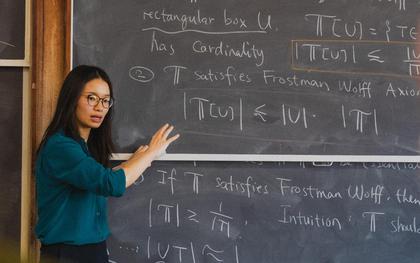 rectangular box U.
𝕋[U] = { T ∈
has Cardinality
|𝕋[U]| ≤
② 𝕋 satisfies Frostman Wolff Axiom
|𝕋[U]| ≲ |U| · |𝕋|
If 𝕋 satisfies Frostman Wolff, then
|𝕋| ≥ Intuition: 𝕋 should